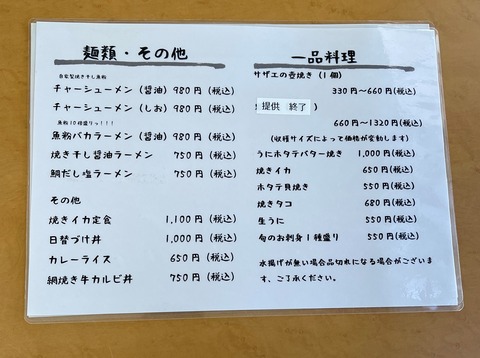 麺類・その他
自家製焼き干し魚粉
チャーシューメン（醤油）980円（税込）
チャーシューメン（しお）980円（税込）
魚粉10倍盛りっ！！！
魚粉バカラーメン（醤油）980円（税込）
焼き干し醤油ラーメン 750円（税込）
鯛だし塩ラーメン 750円（税込）
その他
焼きイカ定食 1,100円（税込）
日替づけ丼 1,000円（税込）
カレーライス 650円（税込）
網焼き牛カルビ丼 750円（税込）
一品料理
サザエの壺焼き（1個）
330円〜660円（税込）
提供 終了 ）
660円〜1320円（税込）
（収穫サイズによって価格が変動します）
うにホタテバター焼き 1,000円（税込）
焼きイカ 650円（税込）
ホタテ貝焼き 550円（税込）
焼きタコ 680円（税込）
生うに 550円（税込）
旬のお刺身1種盛り 550円（税込）
水揚げが無い場合品切れになる場合がございま
す、ご了承ください。